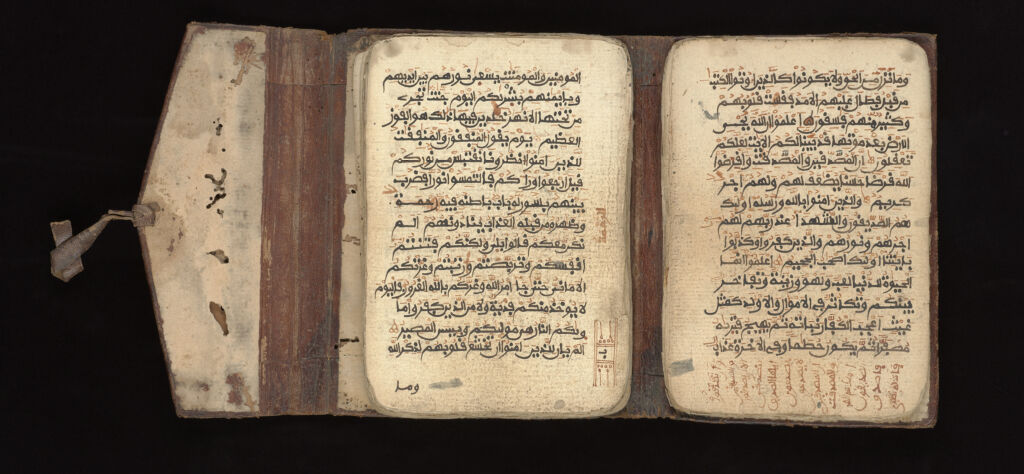 المومنين والمومنت يسعى نورهم بين ايديهم
وبايمنهم بشريكم اليوم جنت تجرے
من تحتها الانهر خلدين فيها ذلك هو الفوز
العظيم يوم يقول المنفقون والمنفقت
للذين امنوا انظرونا نقتبس من نوركم
قيل ارجعوا وراكم فالتمسوا نورا فضرب
بينهم بسور له باب باطنه فيه الرحمة
وظهره من قبله العذاب ينادونهم الم
نكن معكم قالوا بلى ولكنكم فتنتم
انفسكم وتربصتم وارتبتم وغرتكم
الامانى حتى جا امر الله وغركم بالله الغرور فاليوم
لا يوخذ منكم فدية ولا من الذين كفروا ما
ويكم النار هى موليكم وبيس المصير
الم يان للذين امنوا ان تخشع قلوبهم لذكر الله
وما
وما نزل من الحق ولا يكونوا كالذين اوتوا الكتب
من قبل فطال عليهم الامد فقست قلوبهم
وكثير منهم فسقون اعلموا ان الله يحى
الارض بعد موتها قد بينا لكم الايت لعلكم
تعقلون ان المصدقين والمصدقت واقرضوا
الله قرضا حسنا يضعف لهم ولهم اجر
كريم والذين امنوا بالله ورسله اوليك
هم الصديقون والشهدا عند ربهم لهم
اجرهم ونورهم والذين كفروا وكذبوا
بايتنا اوليك اصحب الجحيم اعلموا انما
الحيوة الدنيا لعب ولهو وزينة وتفاخر
بينكم وتكاثر فى الامول والاولد كمثل
غيث اعجب الكفار نباته ثم يهيج فتريه
مصفرا ثم يكون حطما وفى الاخرة عذاب